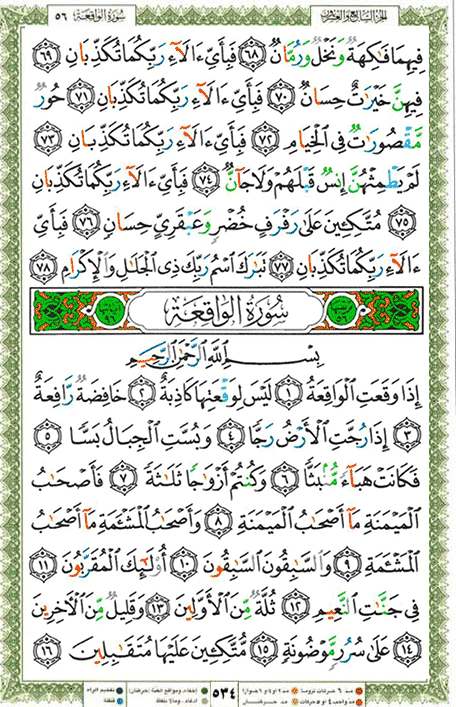 الجزء السابع والعشرون
سورة الواقعة ٥٦
فِيهِمَا فَـٰكِهَةٌ وَنَخْلٌ وَرُمَّانٌ ٦٨ فَبِأَىِّ ءَالَآءِ رَبِّكُمَا تُكَذِّبَانِ ٦٩
فِيهِنَّ خَيْرَٰتٌ حِسَانٌ ٧٠ فَبِأَىِّ ءَالَآءِ رَبِّكُمَا تُكَذِّبَانِ ٧١ حُورٌ
مَّقْصُورَٰتٌ فِى ٱلْخِيَامِ ٧٢ فَبِأَىِّ ءَالَآءِ رَبِّكُمَا تُكَذِّبَانِ ٧٣
لَمْ يَطْمِثْهُنَّ إِنسٌ قَبْلَهُمْ وَلَا جَآنٌّ ٧٤ فَبِأَىِّ ءَالَآءِ رَبِّكُمَا تُكَذِّبَانِ
٧٥ مُتَّكِـِٔينَ عَلَىٰ رَفْرَفٍ خُضْرٍ وَعَبْقَرِىٍّ حِسَانٍ ٧٦ فَبِأَىِّ
ءَالَآءِ رَبِّكُمَا تُكَذِّبَانِ ٧٧ تَبَـٰرَكَ ٱسْمُ رَبِّكَ ذِى ٱلْجَلَـٰلِ وَٱلْإِكْرَامِ ٧٨
سُورَةُ الوَاقِعَةِ
بِسْمِ ٱللَّهِ ٱلرَّحْمَـٰنِ ٱلرَّحِيمِ
إِذَا وَقَعَتِ ٱلْوَاقِعَةُ ١ لَيْسَ لِوَقْعَتِهَا كَاذِبَةٌ ٢ خَافِضَةٌ رَّافِعَةٌ
٣ إِذَا رُجَّتِ ٱلْأَرْضُ رَجًّا ٤ وَبُسَّتِ ٱلْجِبَالُ بَسًّا ٥
فَكَانَتْ هَبَآءً مُّنۢبَثًّا ٦ وَكُنتُمْ أَزْوَٰجًا ثَلَـٰثَةً ٧ فَأَصْحَـٰبُ
ٱلْمَيْمَنَةِ مَآ أَصْحَـٰبُ ٱلْمَيْمَنَةِ ٨ وَأَصْحَـٰبُ ٱلْمَشْـَٔمَةِ مَآ أَصْحَـٰبُ
ٱلْمَشْـَٔمَةِ ٩ وَٱلسَّـٰبِقُونَ ٱلسَّـٰبِقُونَ ١٠ أُو۟لَـٰٓئِكَ ٱلْمُقَرَّبُونَ ١١
فِى جَنَّـٰتِ ٱلنَّعِيمِ ١٢ ثُلَّةٌ مِّنَ ٱلْأَوَّلِينَ ١٣ وَقَلِيلٌ مِّنَ ٱلْـَٔاخِرِينَ
١٤ عَلَىٰ سُرُرٍ مَّوْضُونَةٍ ١٥ مُّتَّكِـِٔينَ عَلَيْهَا مُتَقَـٰبِلِينَ ١٦
٥٣٤